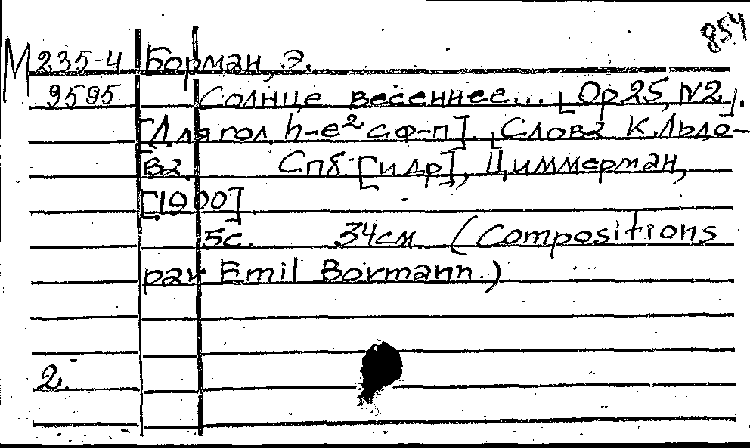 854
М 235-4 Борман, Э.
9595 Солнце весеннее... [Op 25, N2].
[Для гол h-e² с ф-п]. [Слова К. Льдо-
ва. Спб [и др], Циммерман,
[1900]
5с. 34см (Compositions
par Emil Bormann.)
2.